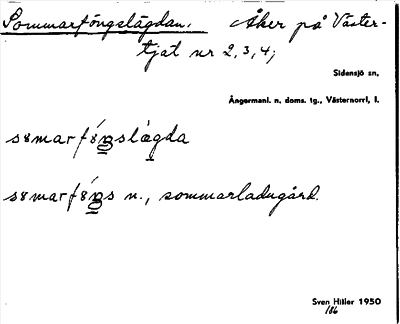 Sommarföngslägdan. Åker på Väster-
tjät nr 2, 3, 4;
Sidensjö sn,
Ångermanl. n. doms. tg., Västernorrl, l.
n., sommarladugård.
Sven Hiller 1950
186